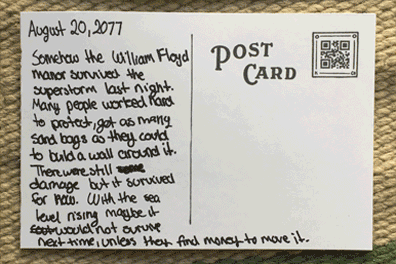 August 20, 2077
Somehow the William Floyd
manor survived the
superstorm last night.
Many people worked hard
to protect, got as many
sand bags as they could
to build a wall around it.
There were still
damage but it survived
for now. With the sea
level rising maybe it
would not survive
next time, unless they find money to move it.
POST
CARD